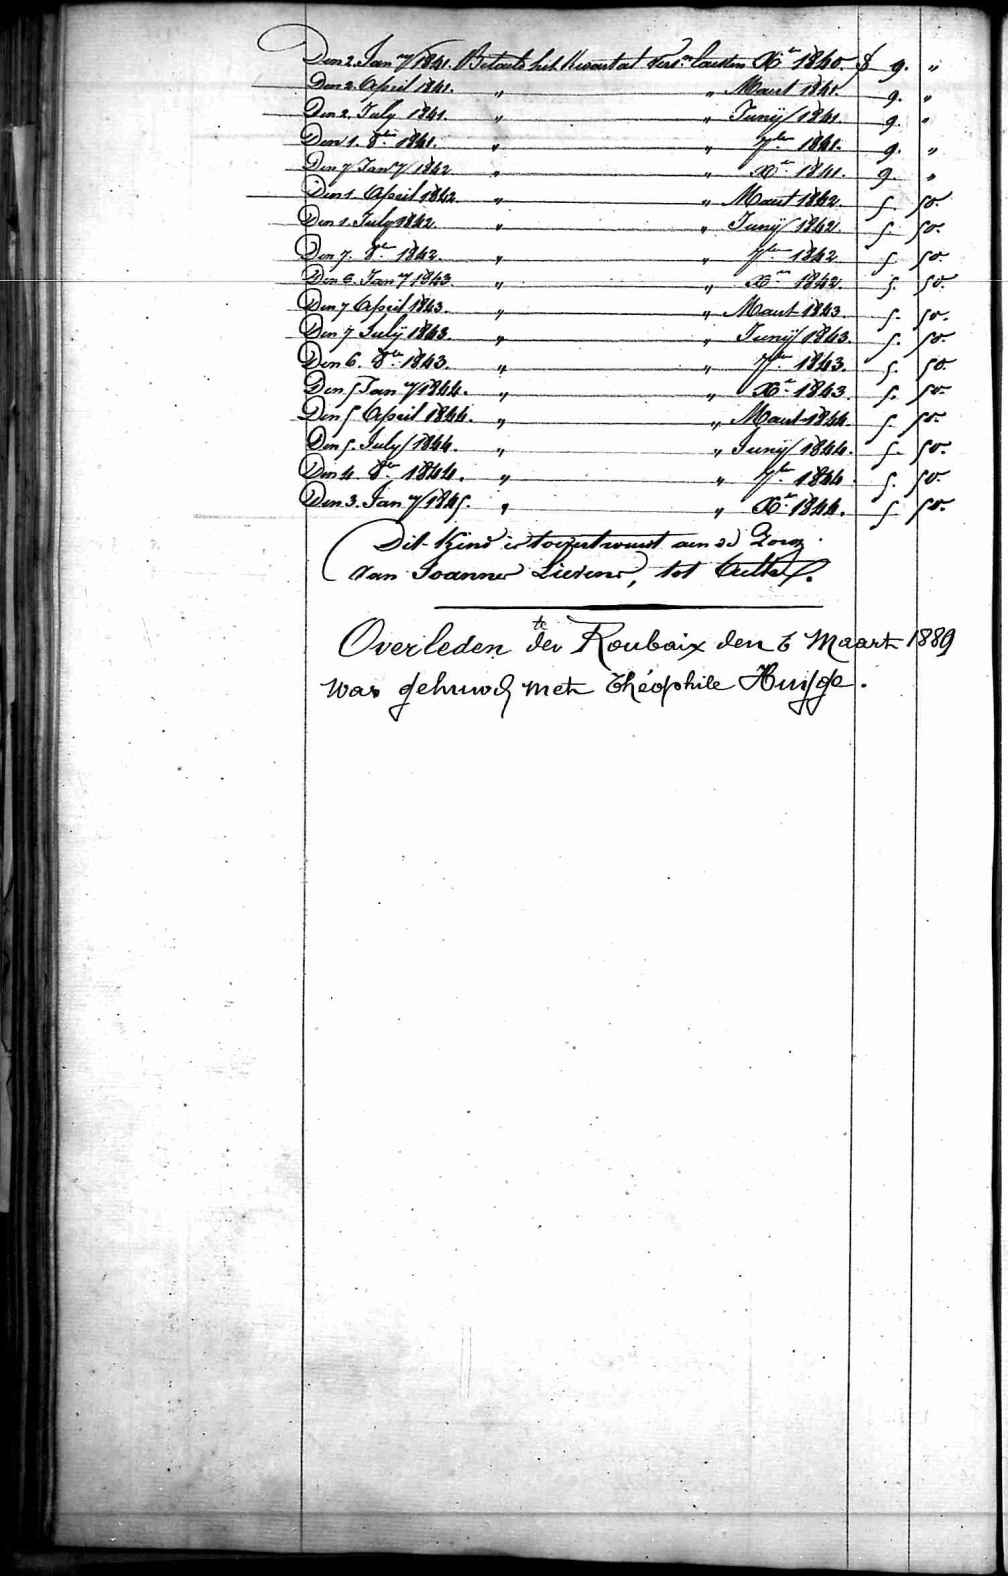 Den 2. Jan ry 1841. Betaalt het Kwartaal vers.en lautsten Xr 1840. f 9. "
Den 2. April 1841. " " Maart 1841. 9. "
Den 2. July 1841. " " Junij 1841. 9. "
Den 1. 8br 1841. " " 7br 1841. 9. "
Den 7 Jan ry 1842 " " Xr 1841. 9. "
Den 1. April 1842. " " Maart 1842. 5. 50.
Den 1. July 1842. " " Junij 1842. 5. 50.
Den 7. 8br 1842. " " 7br 1842 5. 50
Den 6. Jan ry 1843. " " Xr 1842. 5. 50.
Den 7 April 1843. " " Maart 1843. 5. 50.
Den 7 Julij 1843. " " Junij 1843. 5. 50.
Den 6. 8br 1843. " " 7br 1843. 5. 50.
Den 5 Jan ry 1844. " " Xr 1843. 5. 50.
Den 5 April 1844. " " Maart 1844. 5. 50.
Den 5. July 1844. " " Junij 1844. 5. 50.
Den 4. 8br 1844. " " 7br 1844 5. 50.
Den 3. Jan ry 1845. " " Xr 1844. 5. 50.
Dit Kind is toevertrouwt aen de Zorg
van Joannes Lievens, tot
Overleden te der Roubaix den 6 Maart 1889
was gehuwd met Théophile Huijge.